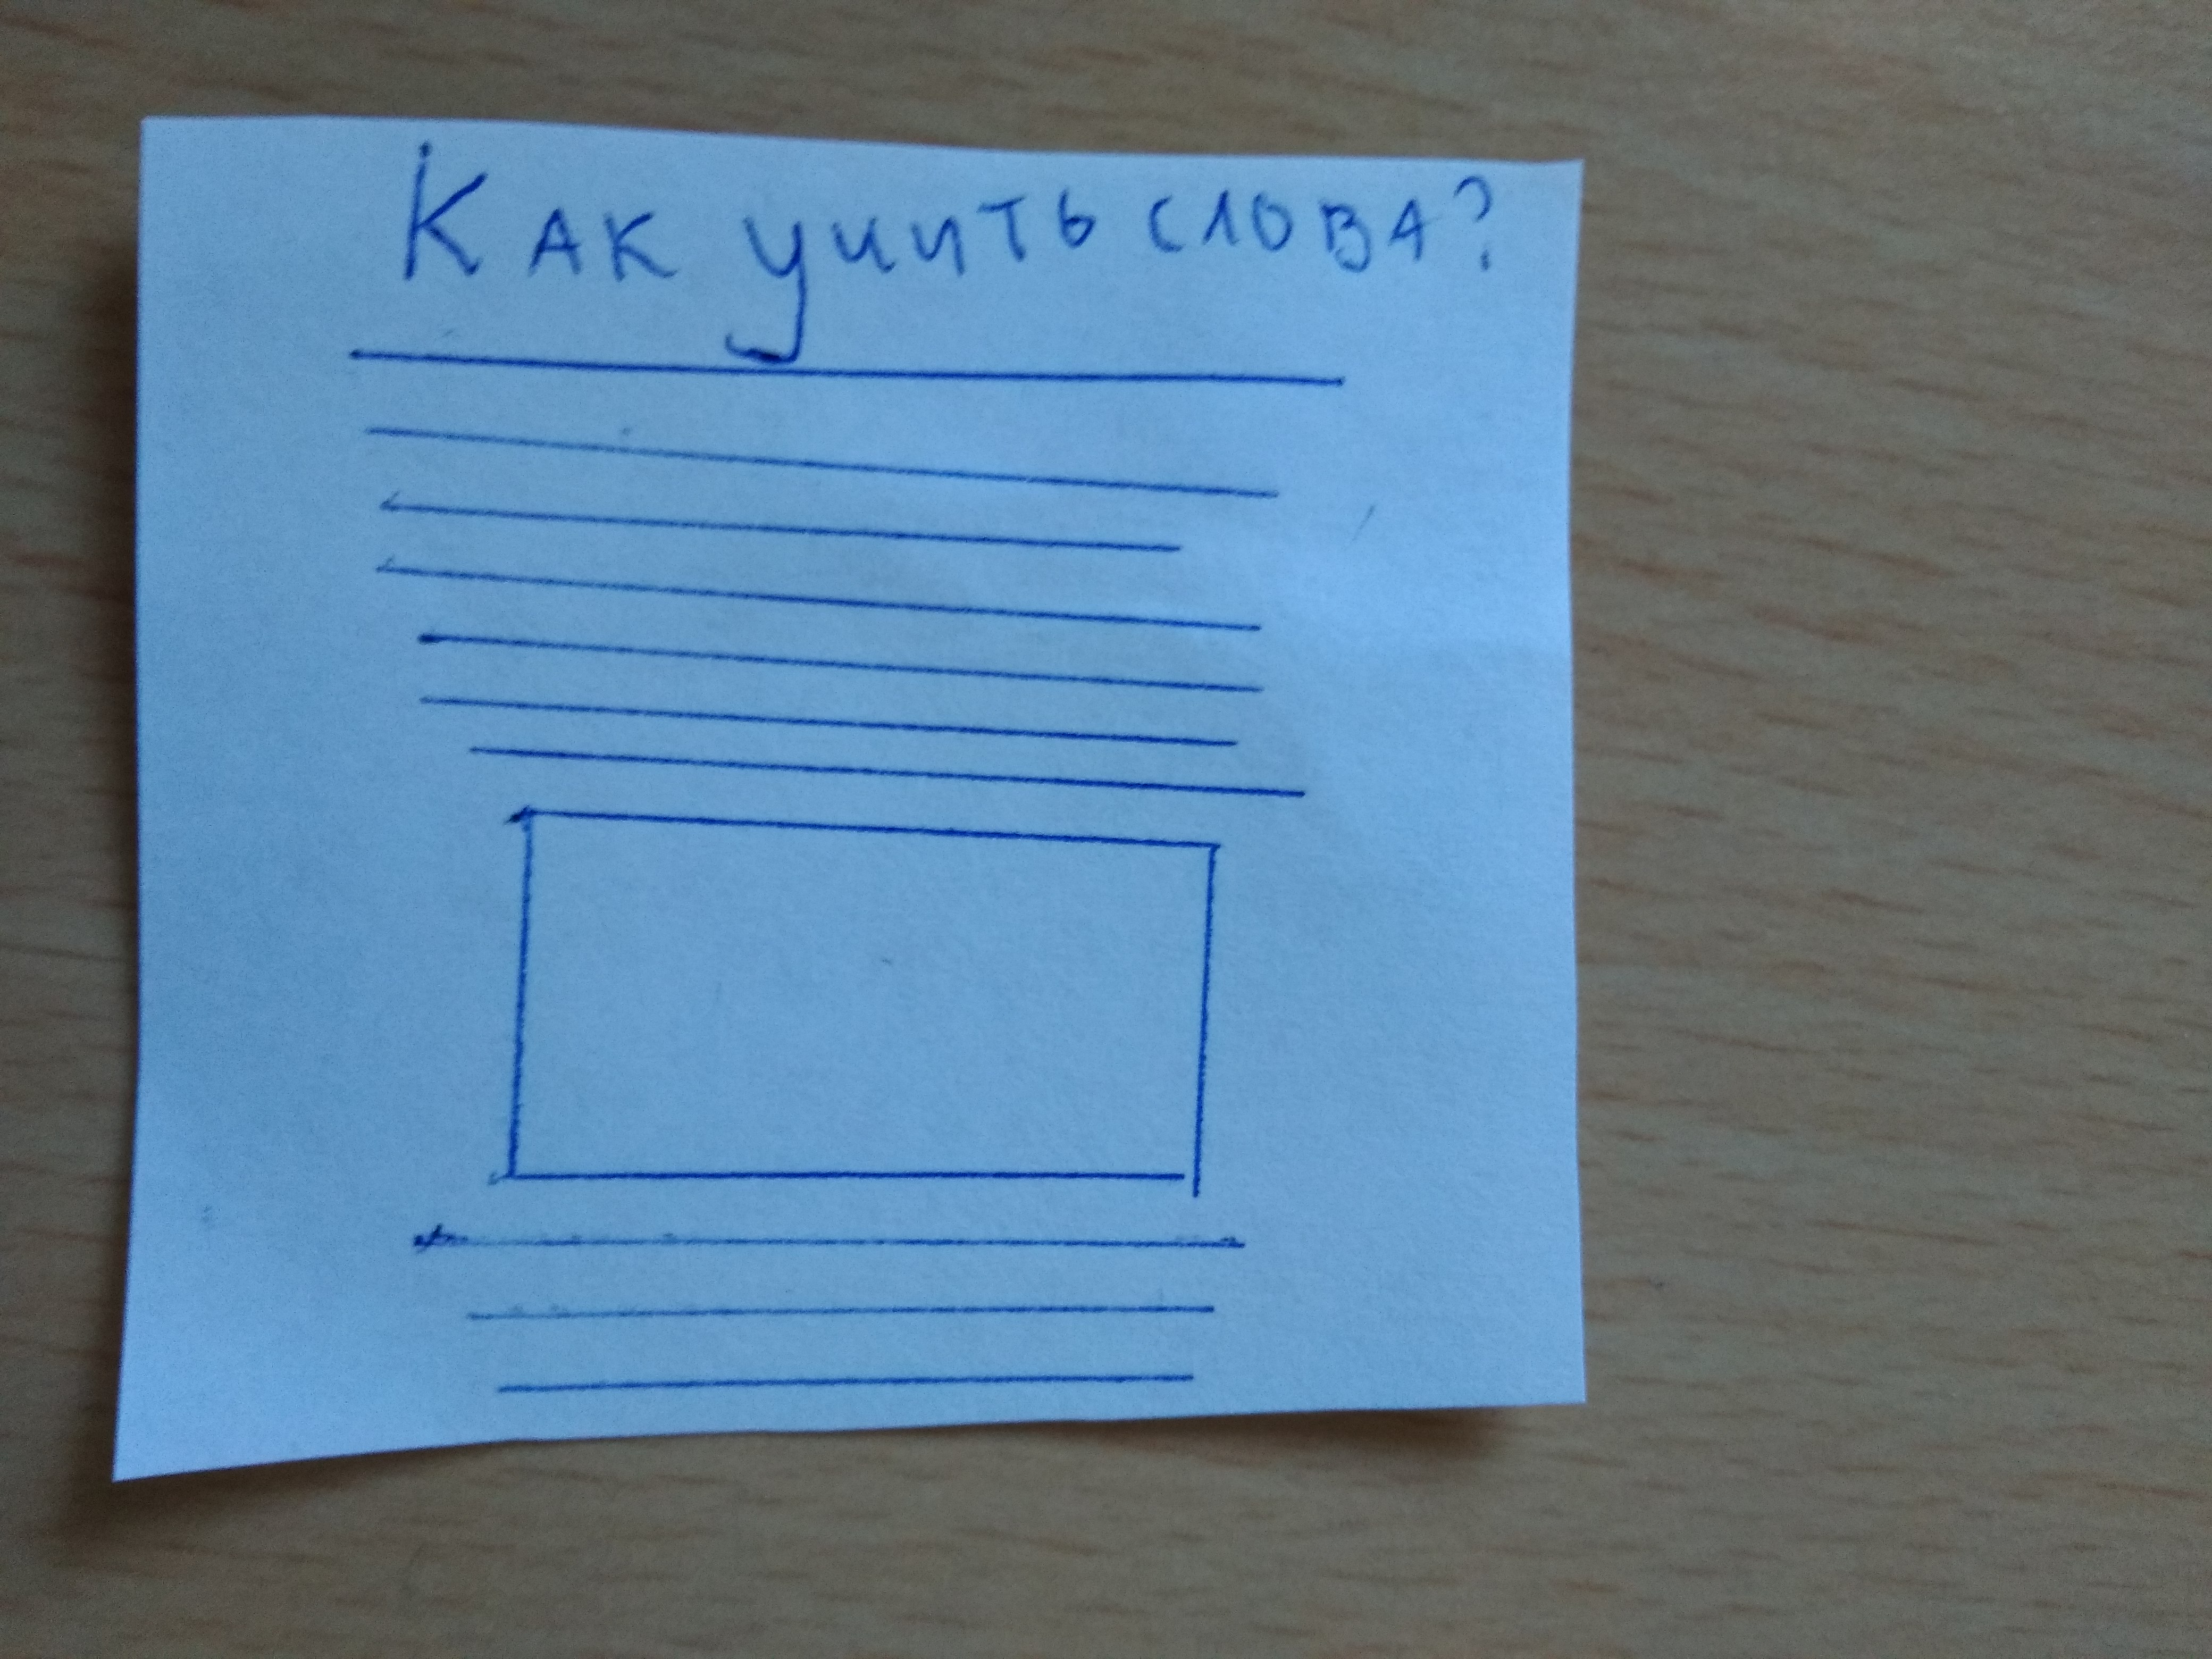 Как учить слова?